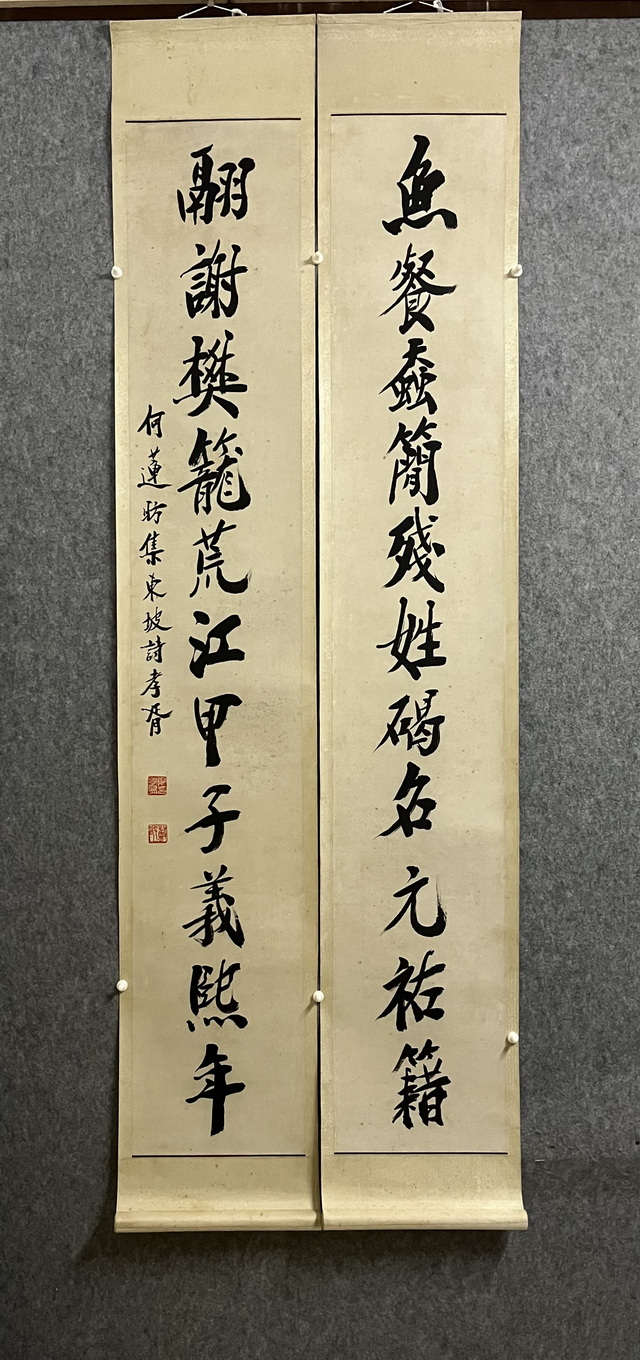 魚餐蠹簡殘姓碣名元祐籍
翮謝樊籠荒江甲子義熙年
何蓮昉集東坡詩孝胥